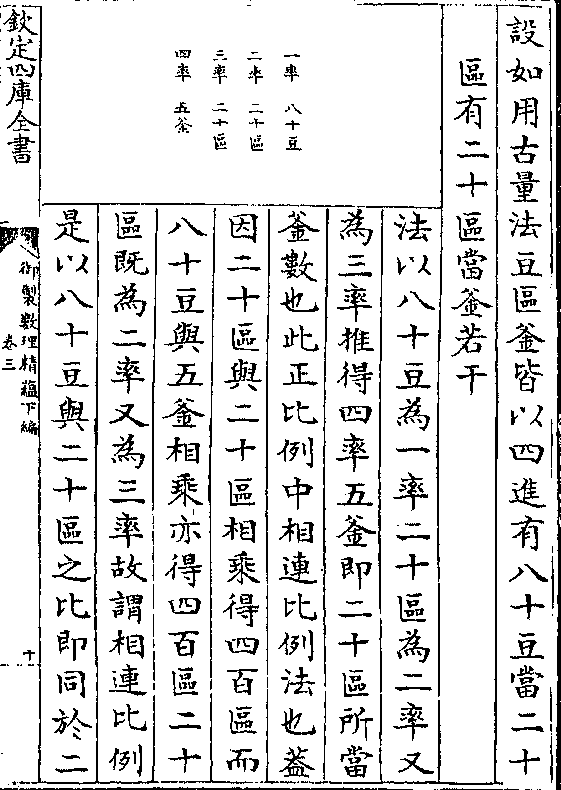 設如用古量法豆區釜皆以四進有八十豆當二十
區有二十區當釜若干
一率　八十豆
二率　二十區
三率　二十區
四率　五釜
法以八十豆為一率二十區為二率又
為三率推得四率五釜即二十區所當
釜數也此正比例中相連比例法也葢
因二十區與二十區相乘得四百區而
八十豆與五釜相乘亦得四百區二十
區既為二率又為三率故謂相連比例
是以八十豆與二十區之比即同於二
欽定四庫全書
御製數理精蘊下編
卷三
十